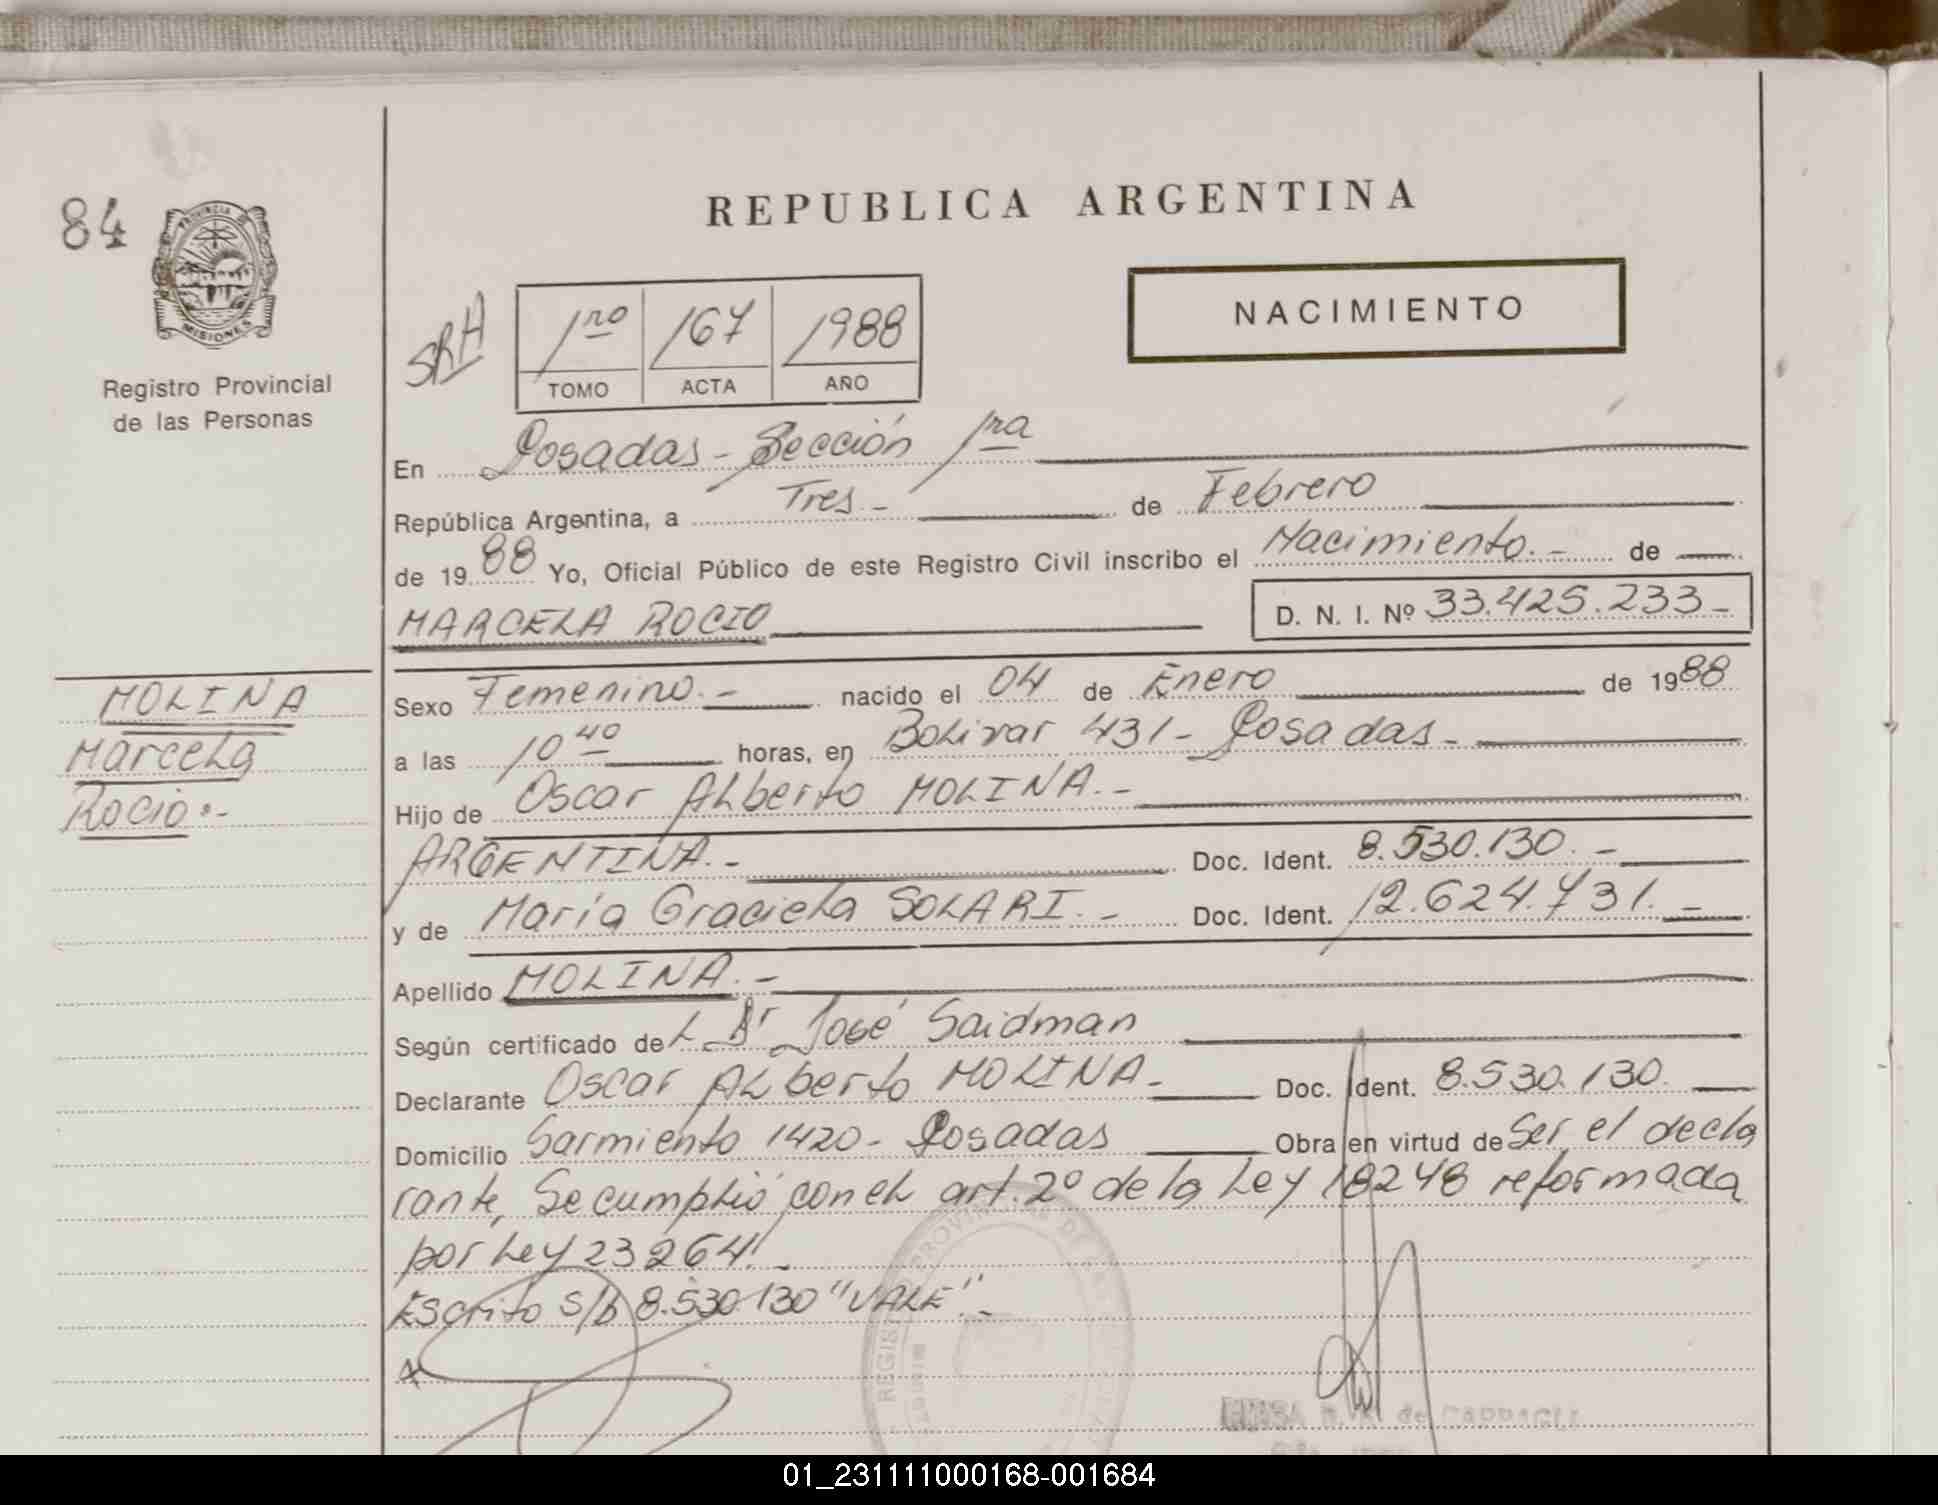 84
PROVINCIA DE
MISIONES
Registro Provincial
de las Personas
REPUBLICA ARGENTINA
NACIMIENTO
SRA
1ro 167 1988
TOMO ACTA AÑO
En Posadas - Sección 1ra
República Argentina, a Tres.- de Febrero
de 1988 Yo, Oficial Público de este Registro Civil inscribo el Nacimiento.- de
MARCELA ROCIO D. N. I. Nº 33.425.233-
MOLINA
Marcela
Rocio.-
Sexo Femenino.- nacido el 04 de Enero de 1988
a las 10 40 horas, en Bolivar 431 - Posadas -
Hijo de Oscar Alberto MOLINA.-
ARGENTINA.- Doc. Ident. 8.530.130.-
y de María Graciela SOLARI.- Doc. Ident. 12.624.731.-
Apellido MOLINA.-
Según certificado del Dr José Saidman
Declarante Oscar Alberto MOLINA- Doc. Ident. 8.530.130.
Domicilio Sarmiento 1420- Posadas Obra en virtud de Ser el decla
rante, Se cumplió con el art. 2º de la Ley 18248 reformada
por Ley 23264.-
Escrito S/B 8.530.130 "VALE".-
REGISTRO PROVINCIAL DE LAS
01_231111000168-001684